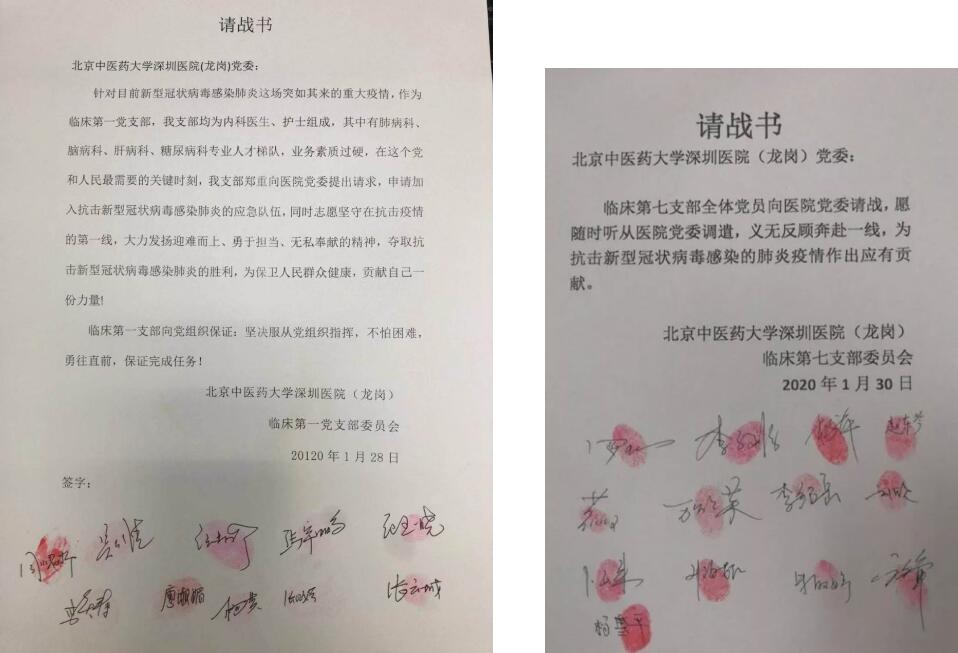 请战书
北京中医药大学深圳医院(龙岗)党委：
针对目前新型冠状病毒感染肺炎这场突如其来的重大疫情，作为
临床第一党支部，我支部均为内科医生、护士组成，其中有肺病科、
脑病科、肝病科、糖尿病科专业人才梯队，业务素质过硬，在这个党
和人民最需要的关键时刻，我支部郑重向医院党委提出请求，申请加
入抗击新型冠状病毒感染肺炎的应急队伍，同时志愿坚守在抗击疫情
的第一线，大力发扬迎难而上、勇于担当、无私奉献的精神，夺取抗
击新型冠状病毒感染肺炎的胜利，为保卫人民群众健康，贡献自己一
份力量!
临床第一支部向党组织保证：坚决服从党组织指挥，不怕困难，
勇往直前，保证完成任务！
北京中医药大学深圳医院（龙岗）
临床第一党支部委员会
20120年1月28日
签字：
请战书
北京中医药大学深圳医院（龙岗）党委：
临床第七支部全体党员向医院党委请战，愿
随时听从医院党委调遣，义无反顾奔赴一线，为
抗击新型冠状病毒感染的肺炎疫情作出应有贡
献。
北京中医药大学深圳医院（龙岗）
临床第七支部委员会
2020年1月30日